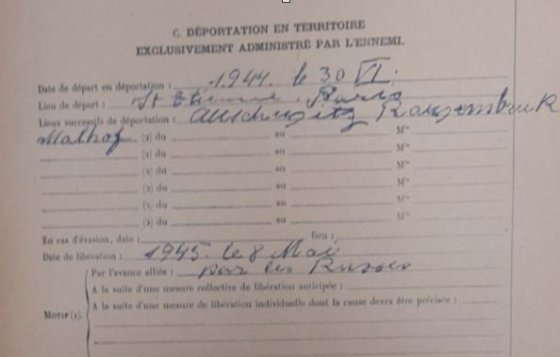 C. DÉPORTATION EN TERRITOIRE
EXCLUSIVEMENT ADMINISTRÉ PAR L'ENNEMI.
Date de départ en déportation : 1944. le 30 VI.
Lieu de départ : St Etienne. Paris
Lieux successifs de déportation : Auschwitz Rawensbruck
Malhof (2) du au Mle
(2) du au Mle
(2) du au Mle
(2) du au Mle
(2) du au Mle
(2) du au Mle
En cas d'évasion, date : lieu :
Date de libération : 1945. le 8 Mai
Par l'avance alliée : par les Russes
A la suite d'une mesure collective de libération anticipée :
MOTIF (2). A la suite d'une mesure de libération individuelle dont la cause devra être précisée :